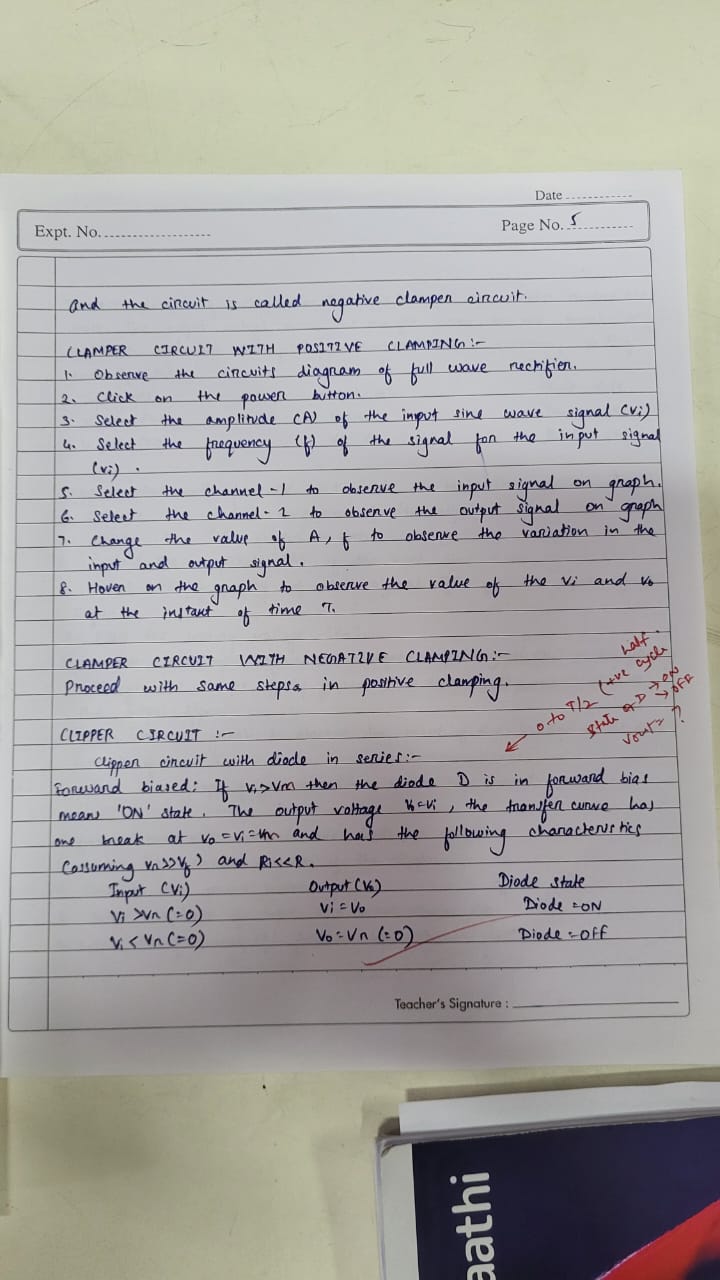 Date
Expt. No.
Page No. 5
and the circuit is called negative clamper circuit.
CLAMPER CIRCUIT WITH POSITIVE CLAMPING :-
1. Observe the circuits diagram of full wave rectifier.
2. Click on the power button.
3. Select the amplitude (A) of the input sine wave signal (Vi)
4. Select the frequency (f) of the signal for the input signal
(Vi) .
5. Select the channel-1 to observe the input signal on graph.
6. Select the channel-2 to observe the output signal on graph
7. Change the value of A, f to observe the variation in the
input and output signal.
8. Hover on the graph to observe the value of the Vi and Vo
at the instant of time T.
CLAMPER CIRCUIT WITH NEGATIVE CLAMPING :-
Proceed with same steps in positive clamping.
half
0 to T/2 (+ve cycle
state of D → ON
→ OFF
Vout = ?
CLIPPER CIRCUIT :-
Clipper circuit with diode in series :-
Forward biased: If Vi > Vm then the diode D is in forward bias
means 'ON' state. The output voltage Vo = Vi , the transfer curve has
one break at Vo = Vi = Vm and has the following characteristics
(assuming and Ri << R.
Input (Vi) Output (Vo) Diode state
Vi > Vn (=0) Vi = Vo Diode = ON
Vi < Vn (=0) Vo = Vn (=0) Diode = OFF
Teacher's Signature :
aathi